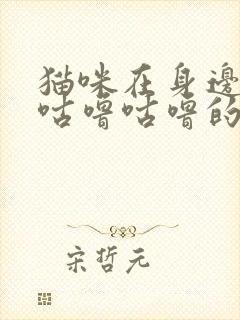 猫咪在身邊
咕嚕咕嚕的
宋哲元